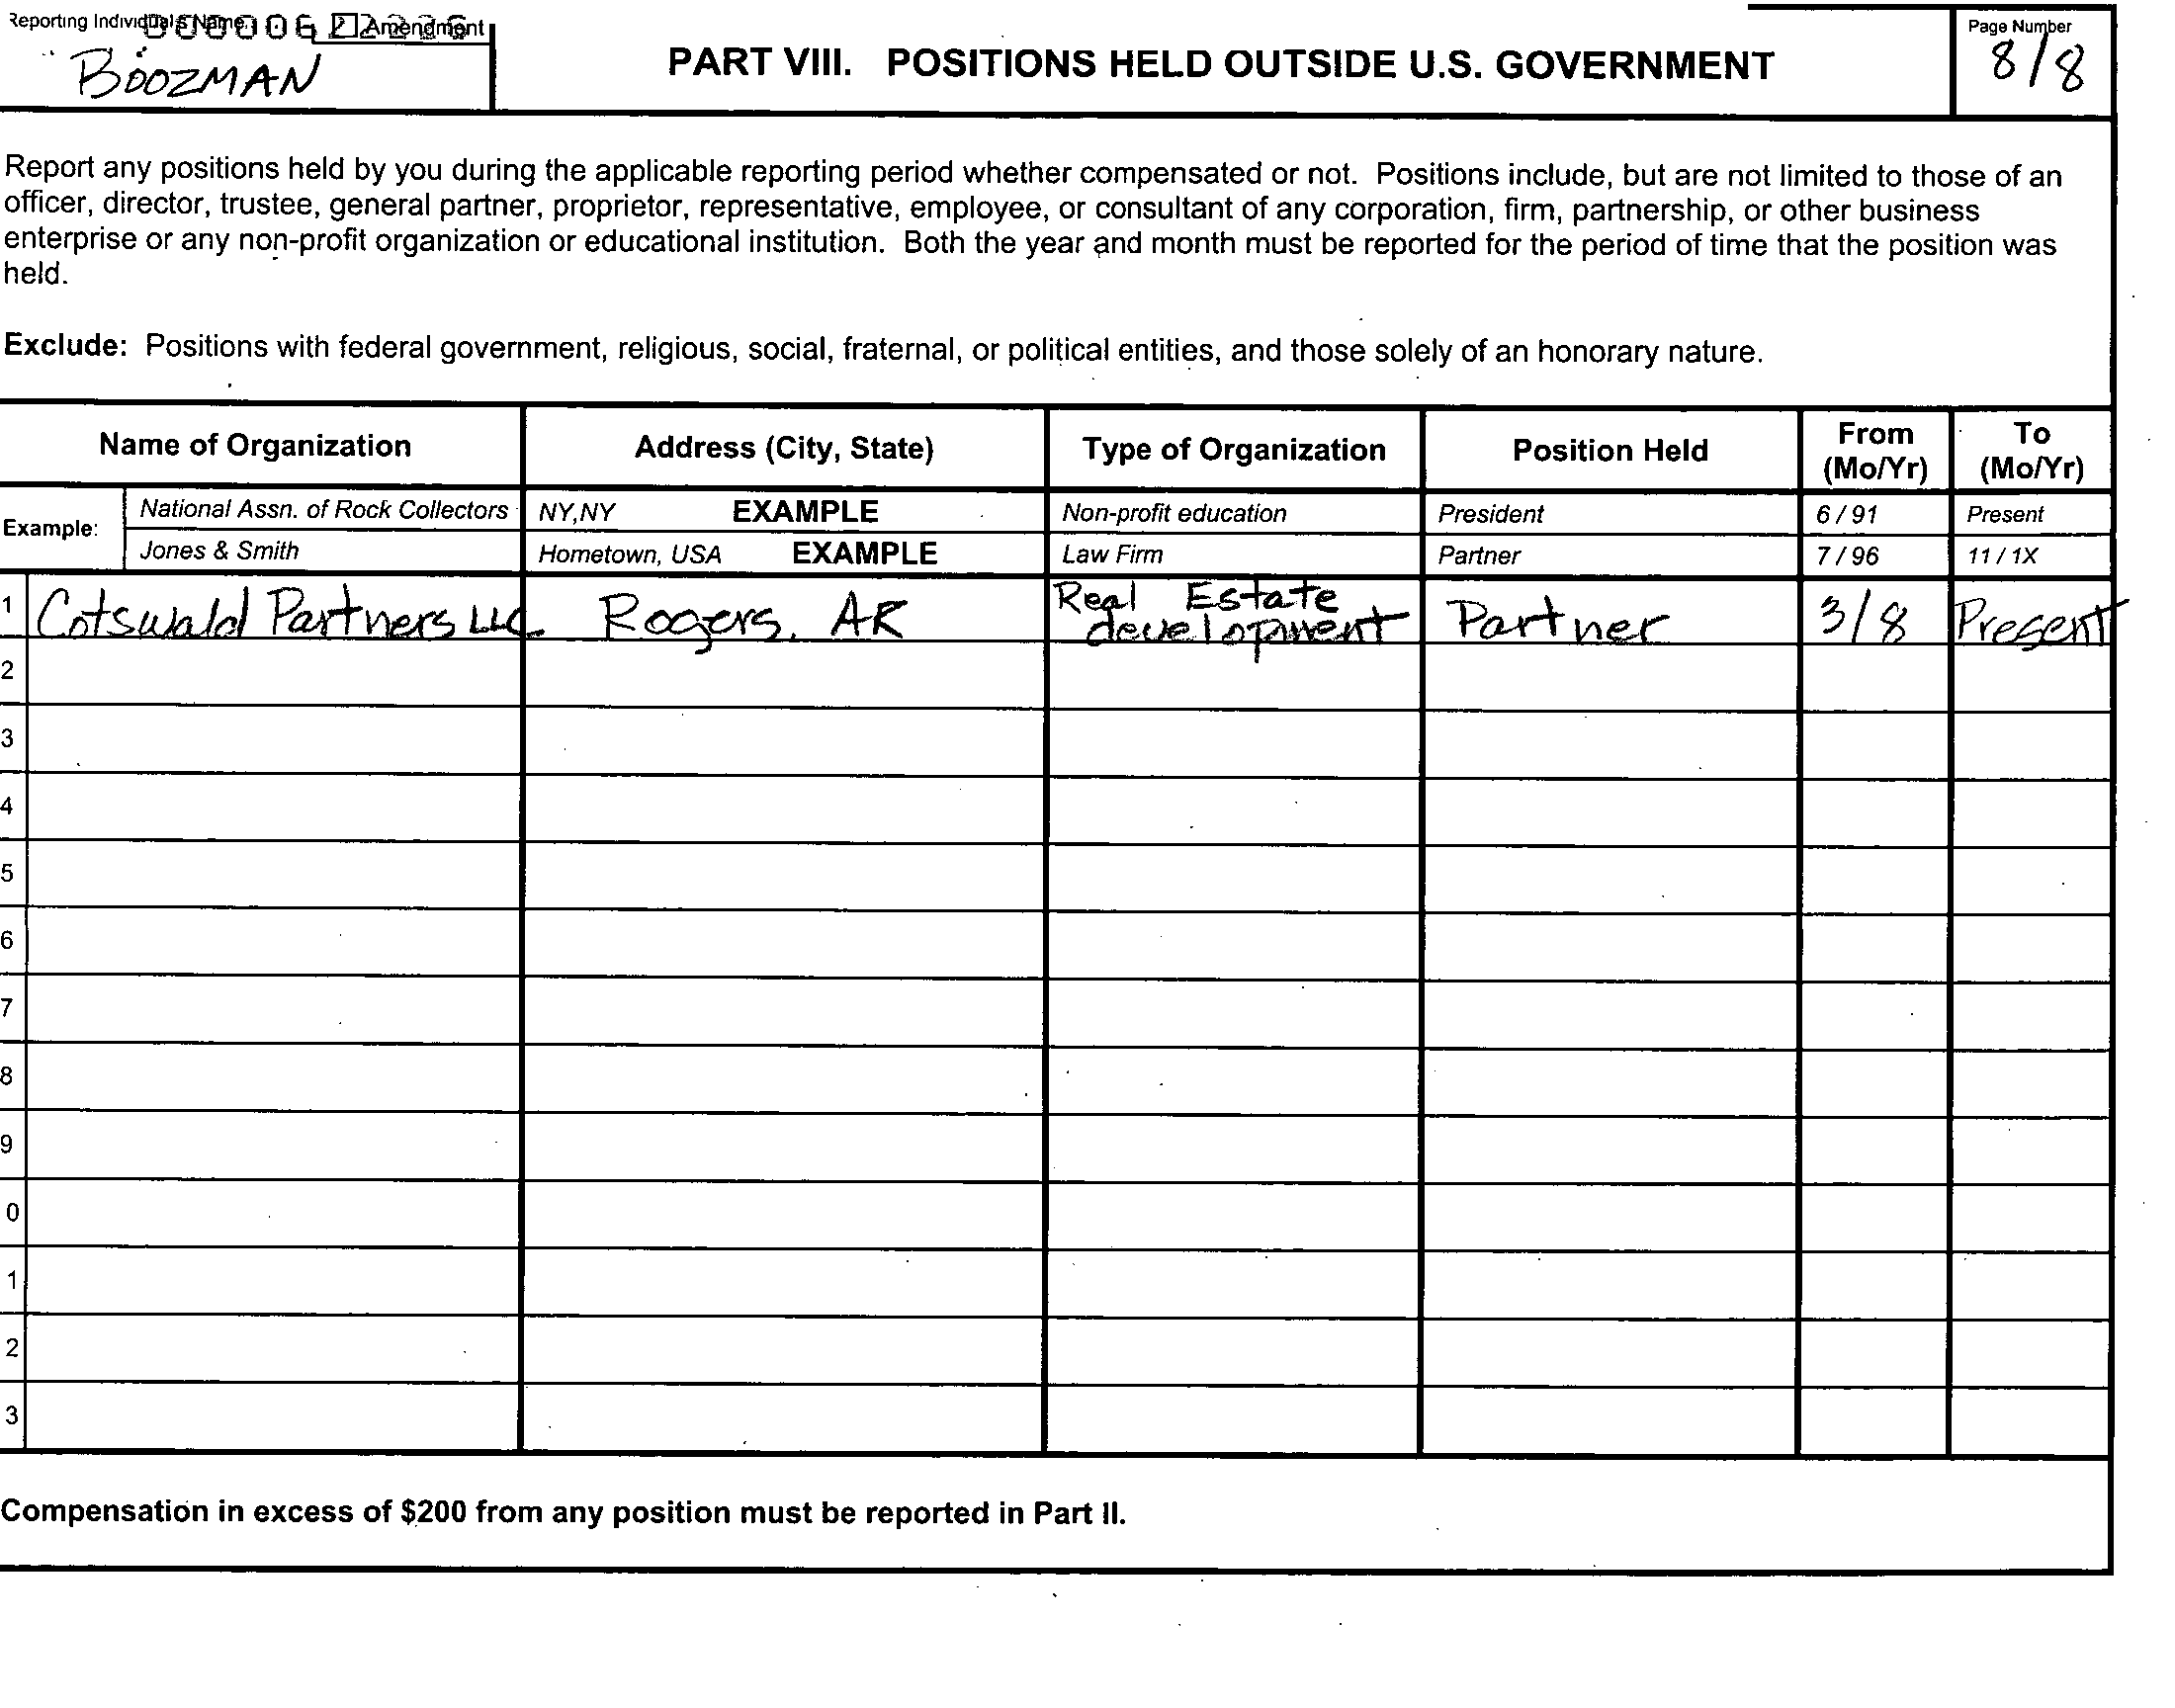 Reporting Individual's Name Amendment
BOOZMAN
PART VIII. POSITIONS HELD OUTSIDE U.S. GOVERNMENT
Page Number
8/8
Report any positions held by you during the applicable reporting period whether compensated or not. Positions include, but are not limited to those of an
officer, director, trustee, general partner, proprietor, representative, employee, or consultant of any corporation, firm, partnership, or other business
enterprise or any non-profit organization or educational institution. Both the year and month must be reported for the period of time that the position was
held.
Exclude: Positions with federal government, religious, social, fraternal, or political entities, and those solely of an honorary nature.
Name of Organization Address (City, State) Type of Organization Position Held From (Mo/Yr) To (Mo/Yr)
Example: National Assn. of Rock Collectors NY,NY EXAMPLE Non-profit education President 6 / 91 Present
Jones & Smith Hometown, USA EXAMPLE Law Firm Partner 7 / 96 11 / 1X
1 Cotswald Partners LLC Rogers, AR Real Estate development Partner 3/8 Present
2
3
4
5
6
7
8
9
0
1
2
3
Compensation in excess of $200 from any position must be reported in Part II.